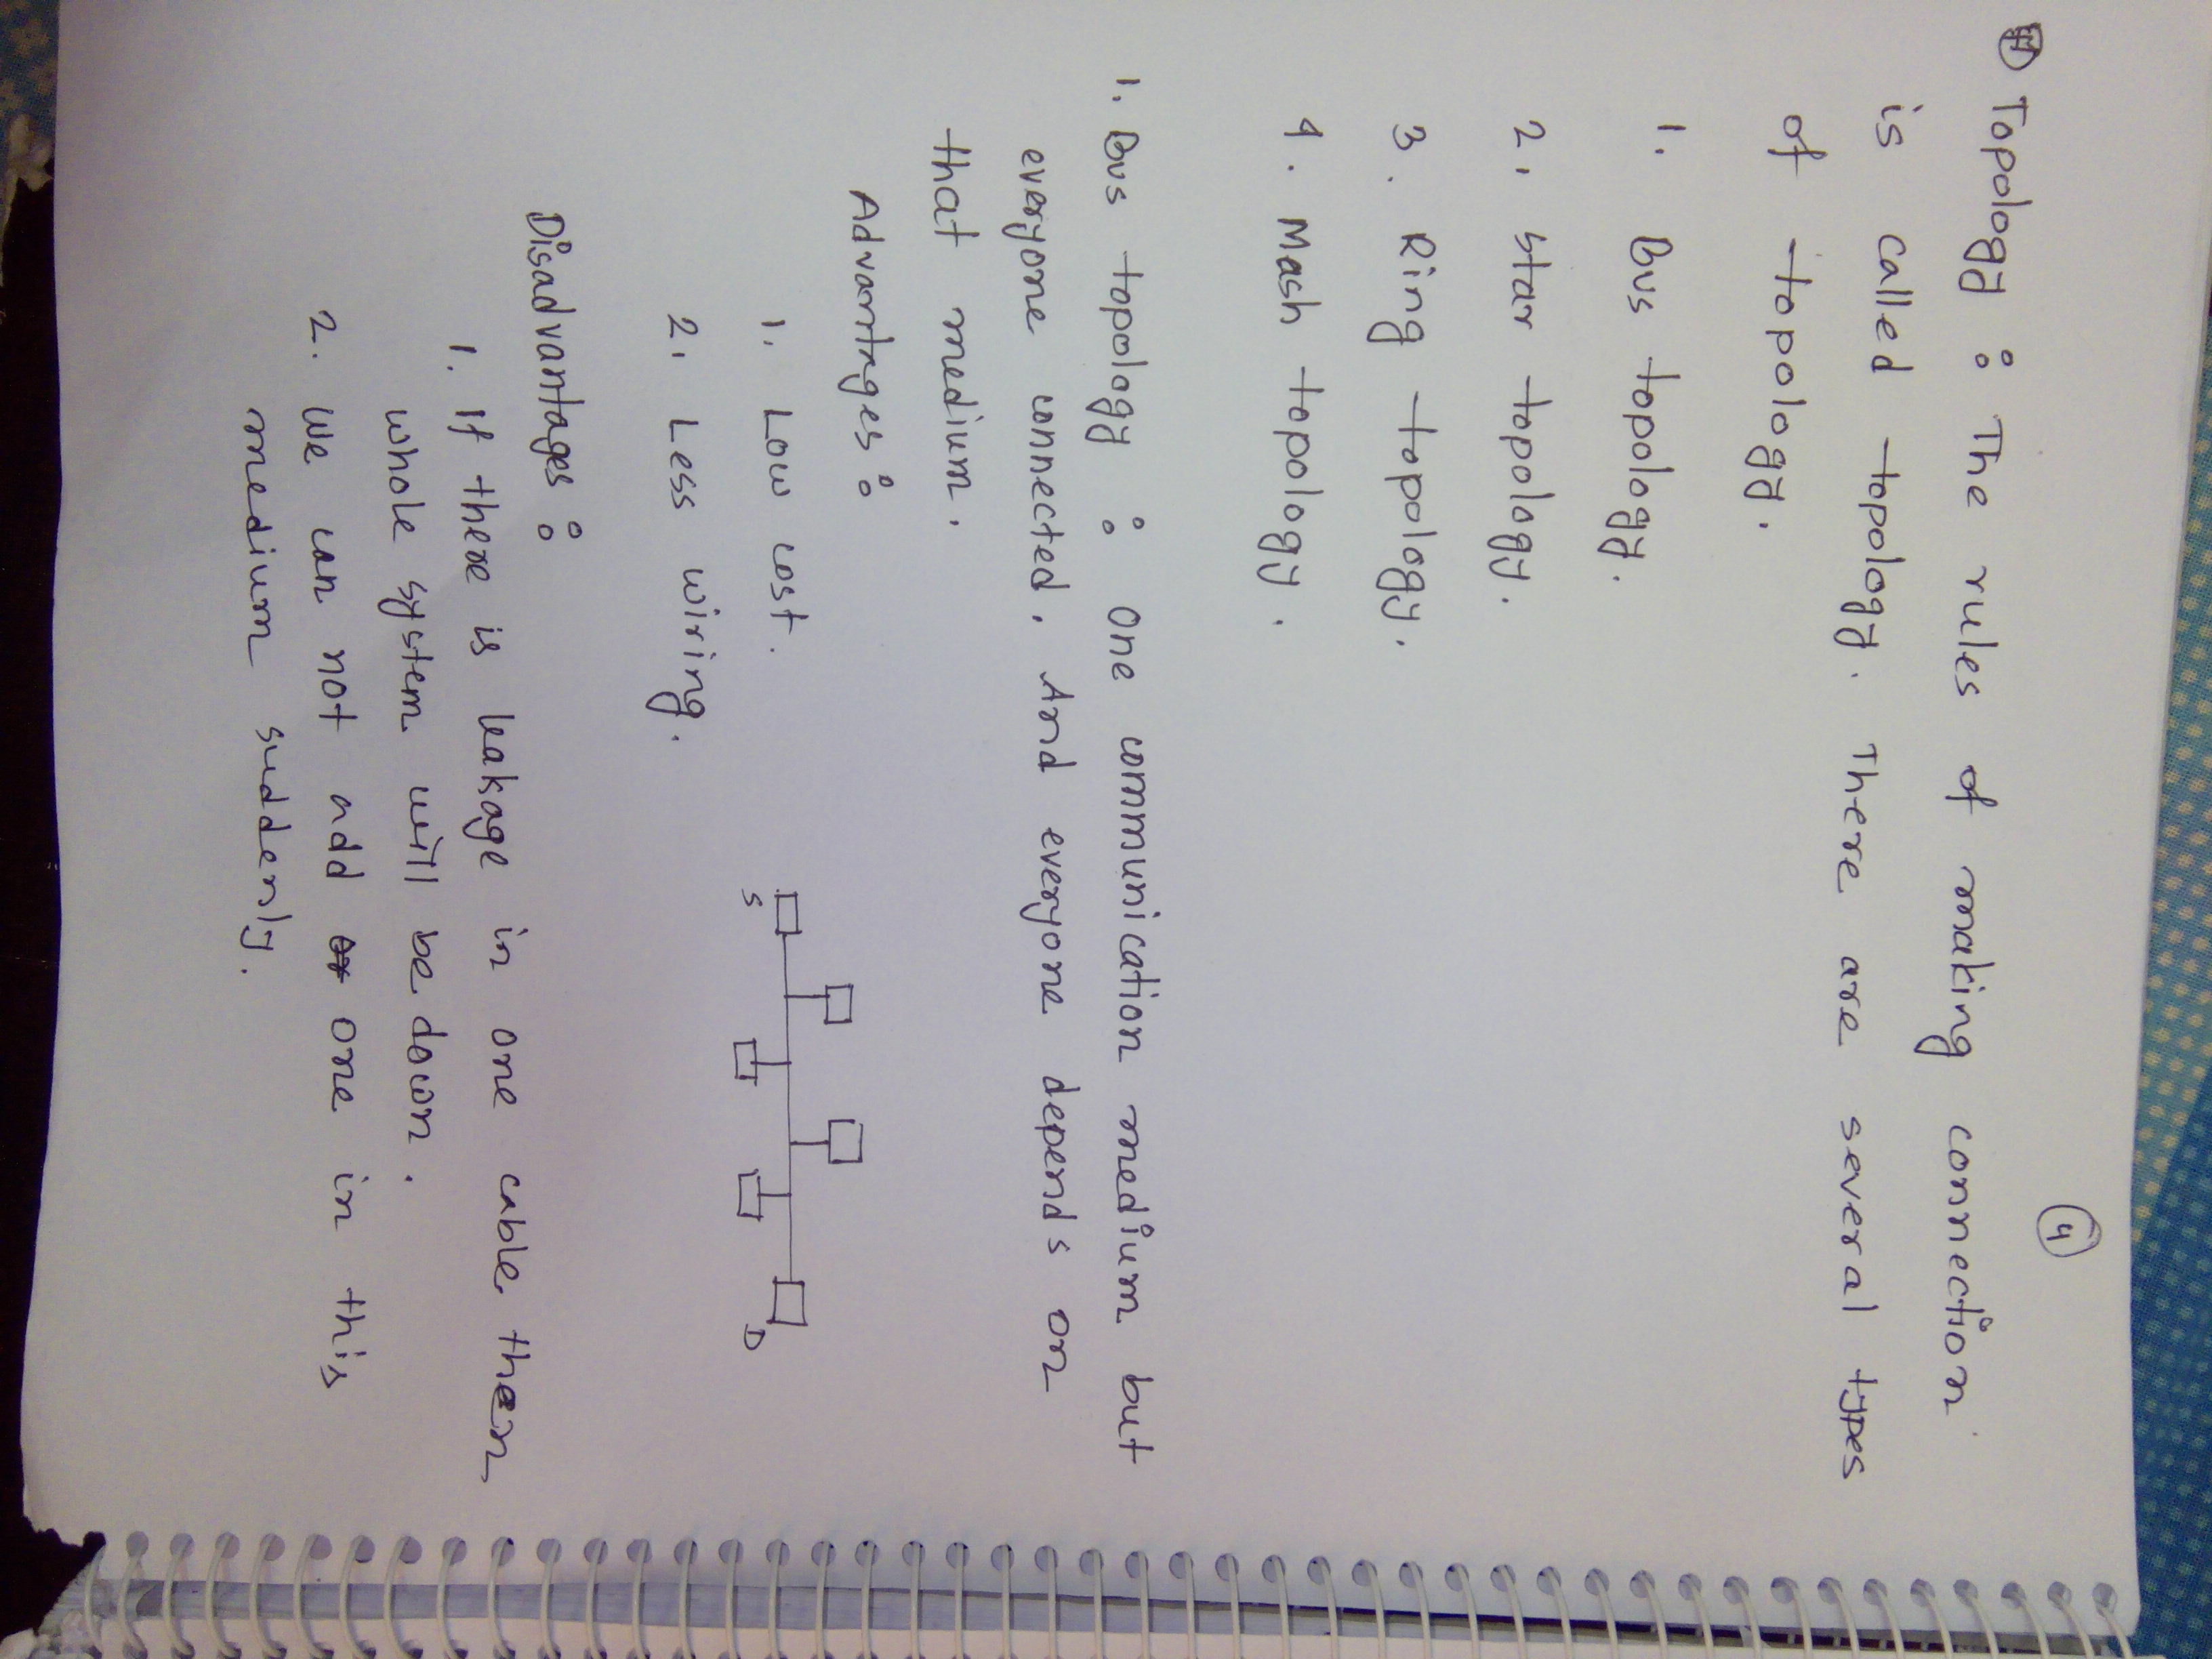 4
# Topology : The rules of making connection
is called topology. There are several types
of topology.
1. Bus topology.
2. Star topology.
3. Ring topology.
4. Mash topology.
1. Bus topology : One communication medium but
everyone connected. And everyone depends on
that medium.
Advantages :
1. Low cost.
S D
2. Less wiring.
Disadvantages :
1. If there is leakage in one cable then
whole system will be down.
2. We can not add or one in this
medium suddenly.